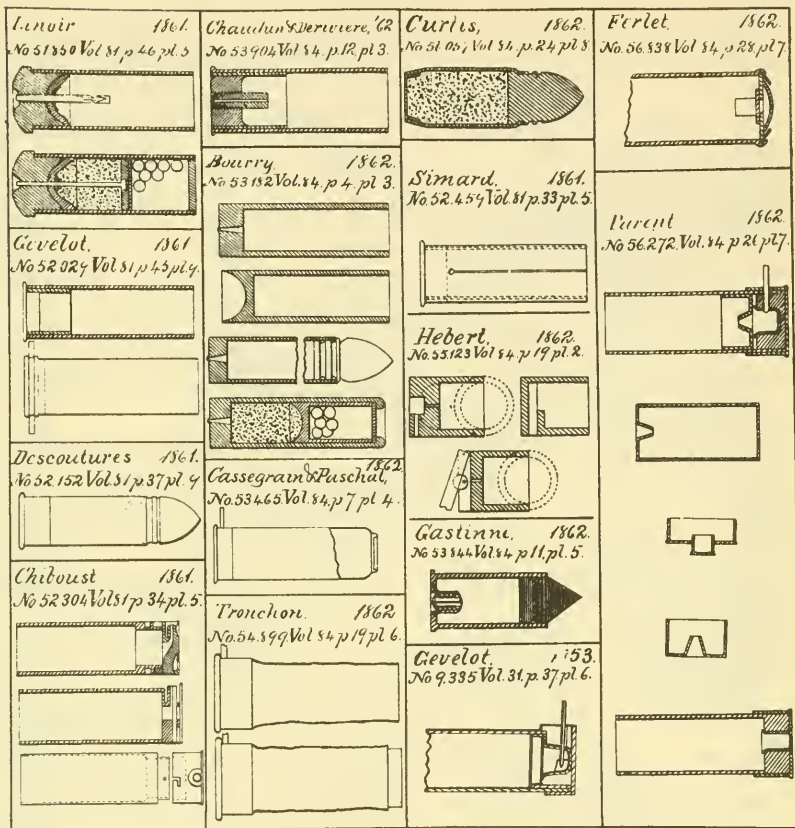 Lenoir 1861.
No 51850 Vol 81, p 46 pl. 5
Gevelot, 1861
No 52029 Vol 81 p 45 pl. 4.
Descoutures 1861.
No 52152 Vol. 81 p 37 pl. 4
Chiboust 1861.
No 52304 Vol 81 p 34 pl. 5.
Chaudun & Deriviere, '62
No 53904 Vol 84. p. 12, pl 3.
Bourry, 1862.
No 53182 Vol. 84. p 4. pl 3.
Cassegrain & Paschal, 1862
No. 53465. Vol. 84. p 7 pl 4.
Tronchon. 1862
No. 54.899 Vol 84 p 19 pl 6.
Curtis, 1862.
Vol 84. p. 24 pl 8
Simard, 1861.
No. 52.459 Vol 81 p. 33 pl. 5.
Hebert, 1862.
No. 55123 Vol 84. p 19 pl. 2.
Gastinne, 1862.
No 53844 Vol 84 p 11, pl. 5.
Gevelot, 53.
No 9.335 Vol. 31. p. 37 pl. 6.
Ferlet, 1862.
No. 56.838 Vol 84, p 28, pl 7.
Parent 1862.
No 56.272. Vol. 84 p 26 pl 7.